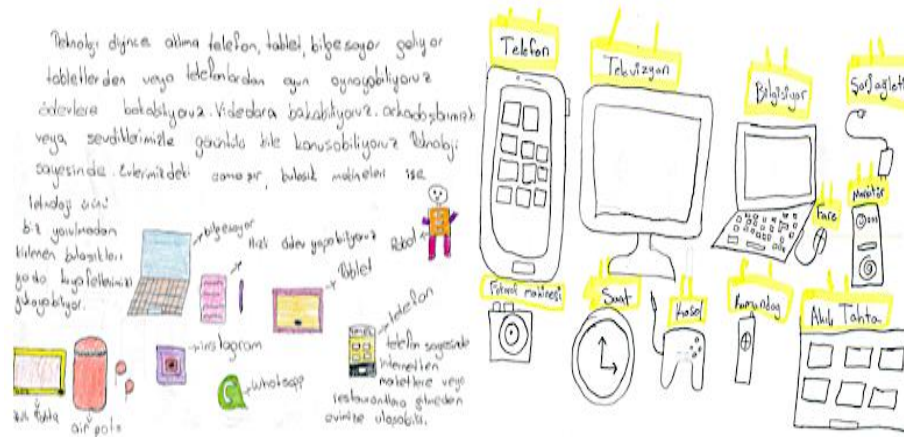 Teknoloji diyince aklıma telefon, tablet, bilgesayar geliyor
tabletlerden veya telefonlardan oyun oynayabiliyoruz
ödevlere bakabiliyoruz. Videolara bakabiliyoruz. arkadaşlarımızla
veya sevdiklerimizle görüntülü bile konuşabiliyoruz Teknoloji
sayesinde. Evlerimizdeki çamaşır, bulaşık makineleri ise
teknoloji ürünü
biz yorulmadan
kirlenen bulaşıkları
ya da kıyafetlerimizi
yıkayabiliyor.
bilgesayar
Hızlı ödev yapabiliyoruz
Tablet
Robot
instagram
Whatsapp
telefon
telefon sayesinde
internetten
marketlere veya
restaurantlara gitmeden
evimize ulaşabilir.
Tahta
air pots
Telefon
Televizyon
Bilgisiyar
Şarj ağleti
Fare
Monitör
Fotoraf makinesi
Saat
Kosol
Kumandag
Akıllı Tahta